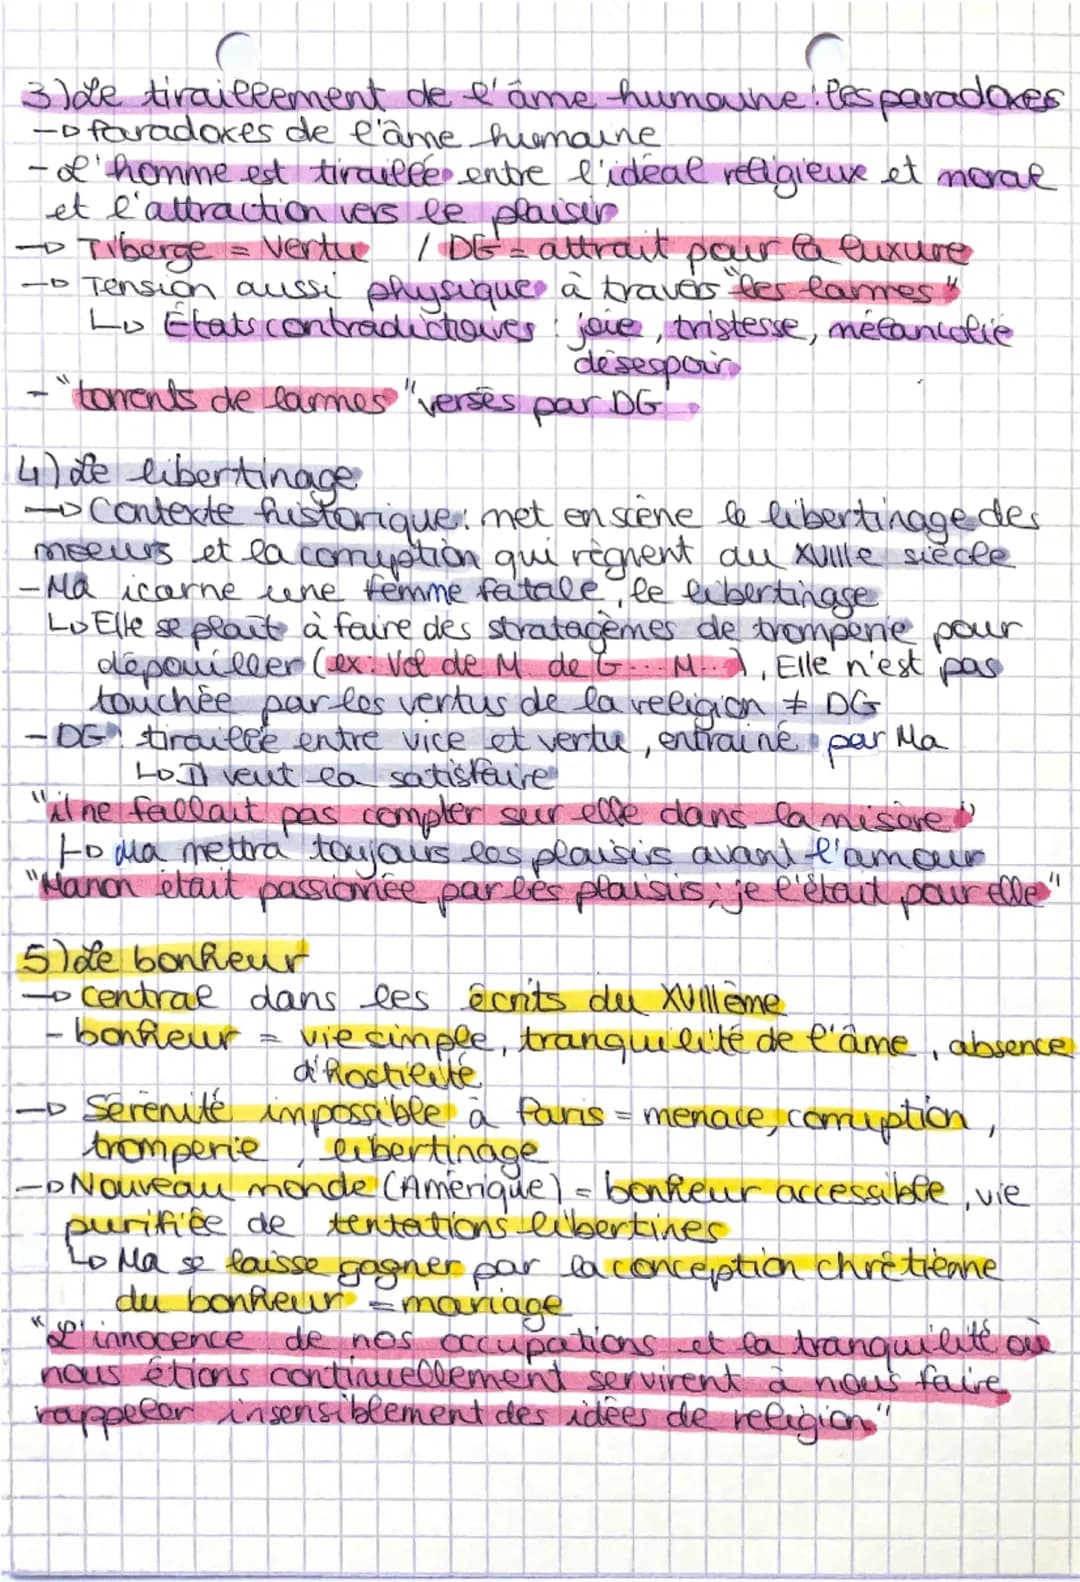 3) Le tiraillement de l'âme humaine : les paradoxes
→ Paradoxes de l'âme humaine
- L'homme est tiraillée entre l'idéal religieux et moral
et l'attraction vers le plaisir
→ Tiberge = Vertu / DG = attrait pour la luxure
→ Tension aussi physique à travers "les larmes"
↳ États contradictoires : joie, tristesse, mélancolie
désespoir
- "torrents de larmes" versés par DG
4) Le libertinage
→ Contexte historique : met en scène le libertinage des
moeurs et la corruption qui règnent au XVIIIe siècle
- Ma icarne une femme fatale, le libertinage
↳ Elle se plaît à faire des stratagèmes de tromperie pour
dépouiller (ex : Vol de M de G... M...). Elle n'est pas
touchée par les vertus de la religion ≠ DG
- DG : tiraillée entre vice et vertu, entrainé par Ma
↳ Il veut la satisfaire
"il ne fallait pas compter sur elle dans la misère"
↳ Ma mettra toujours les plaisirs avant l'amour
"Manon était passionnée par les plaisirs ; je l'était pour elle"
5) Le bonheur
→ central dans les écrits du XVIIIème
- bonheur = vie simple, tranquilité de l'âme, absence
d'hostilité
→ Sérénité impossible à Paris = menace, corruption,
tromperie, libertinage
→ Nouveau monde (Amérique) = bonheur accessible, vie
purifiée de tentations libertines
↳ Ma se laisse gagner par la conception chrétienne
du bonheur = mariage
"L'innocence de nos occupations et la tranquilité où
nous étions continuellement servirent à nous faire
rappeler insensiblement des idées de religion"